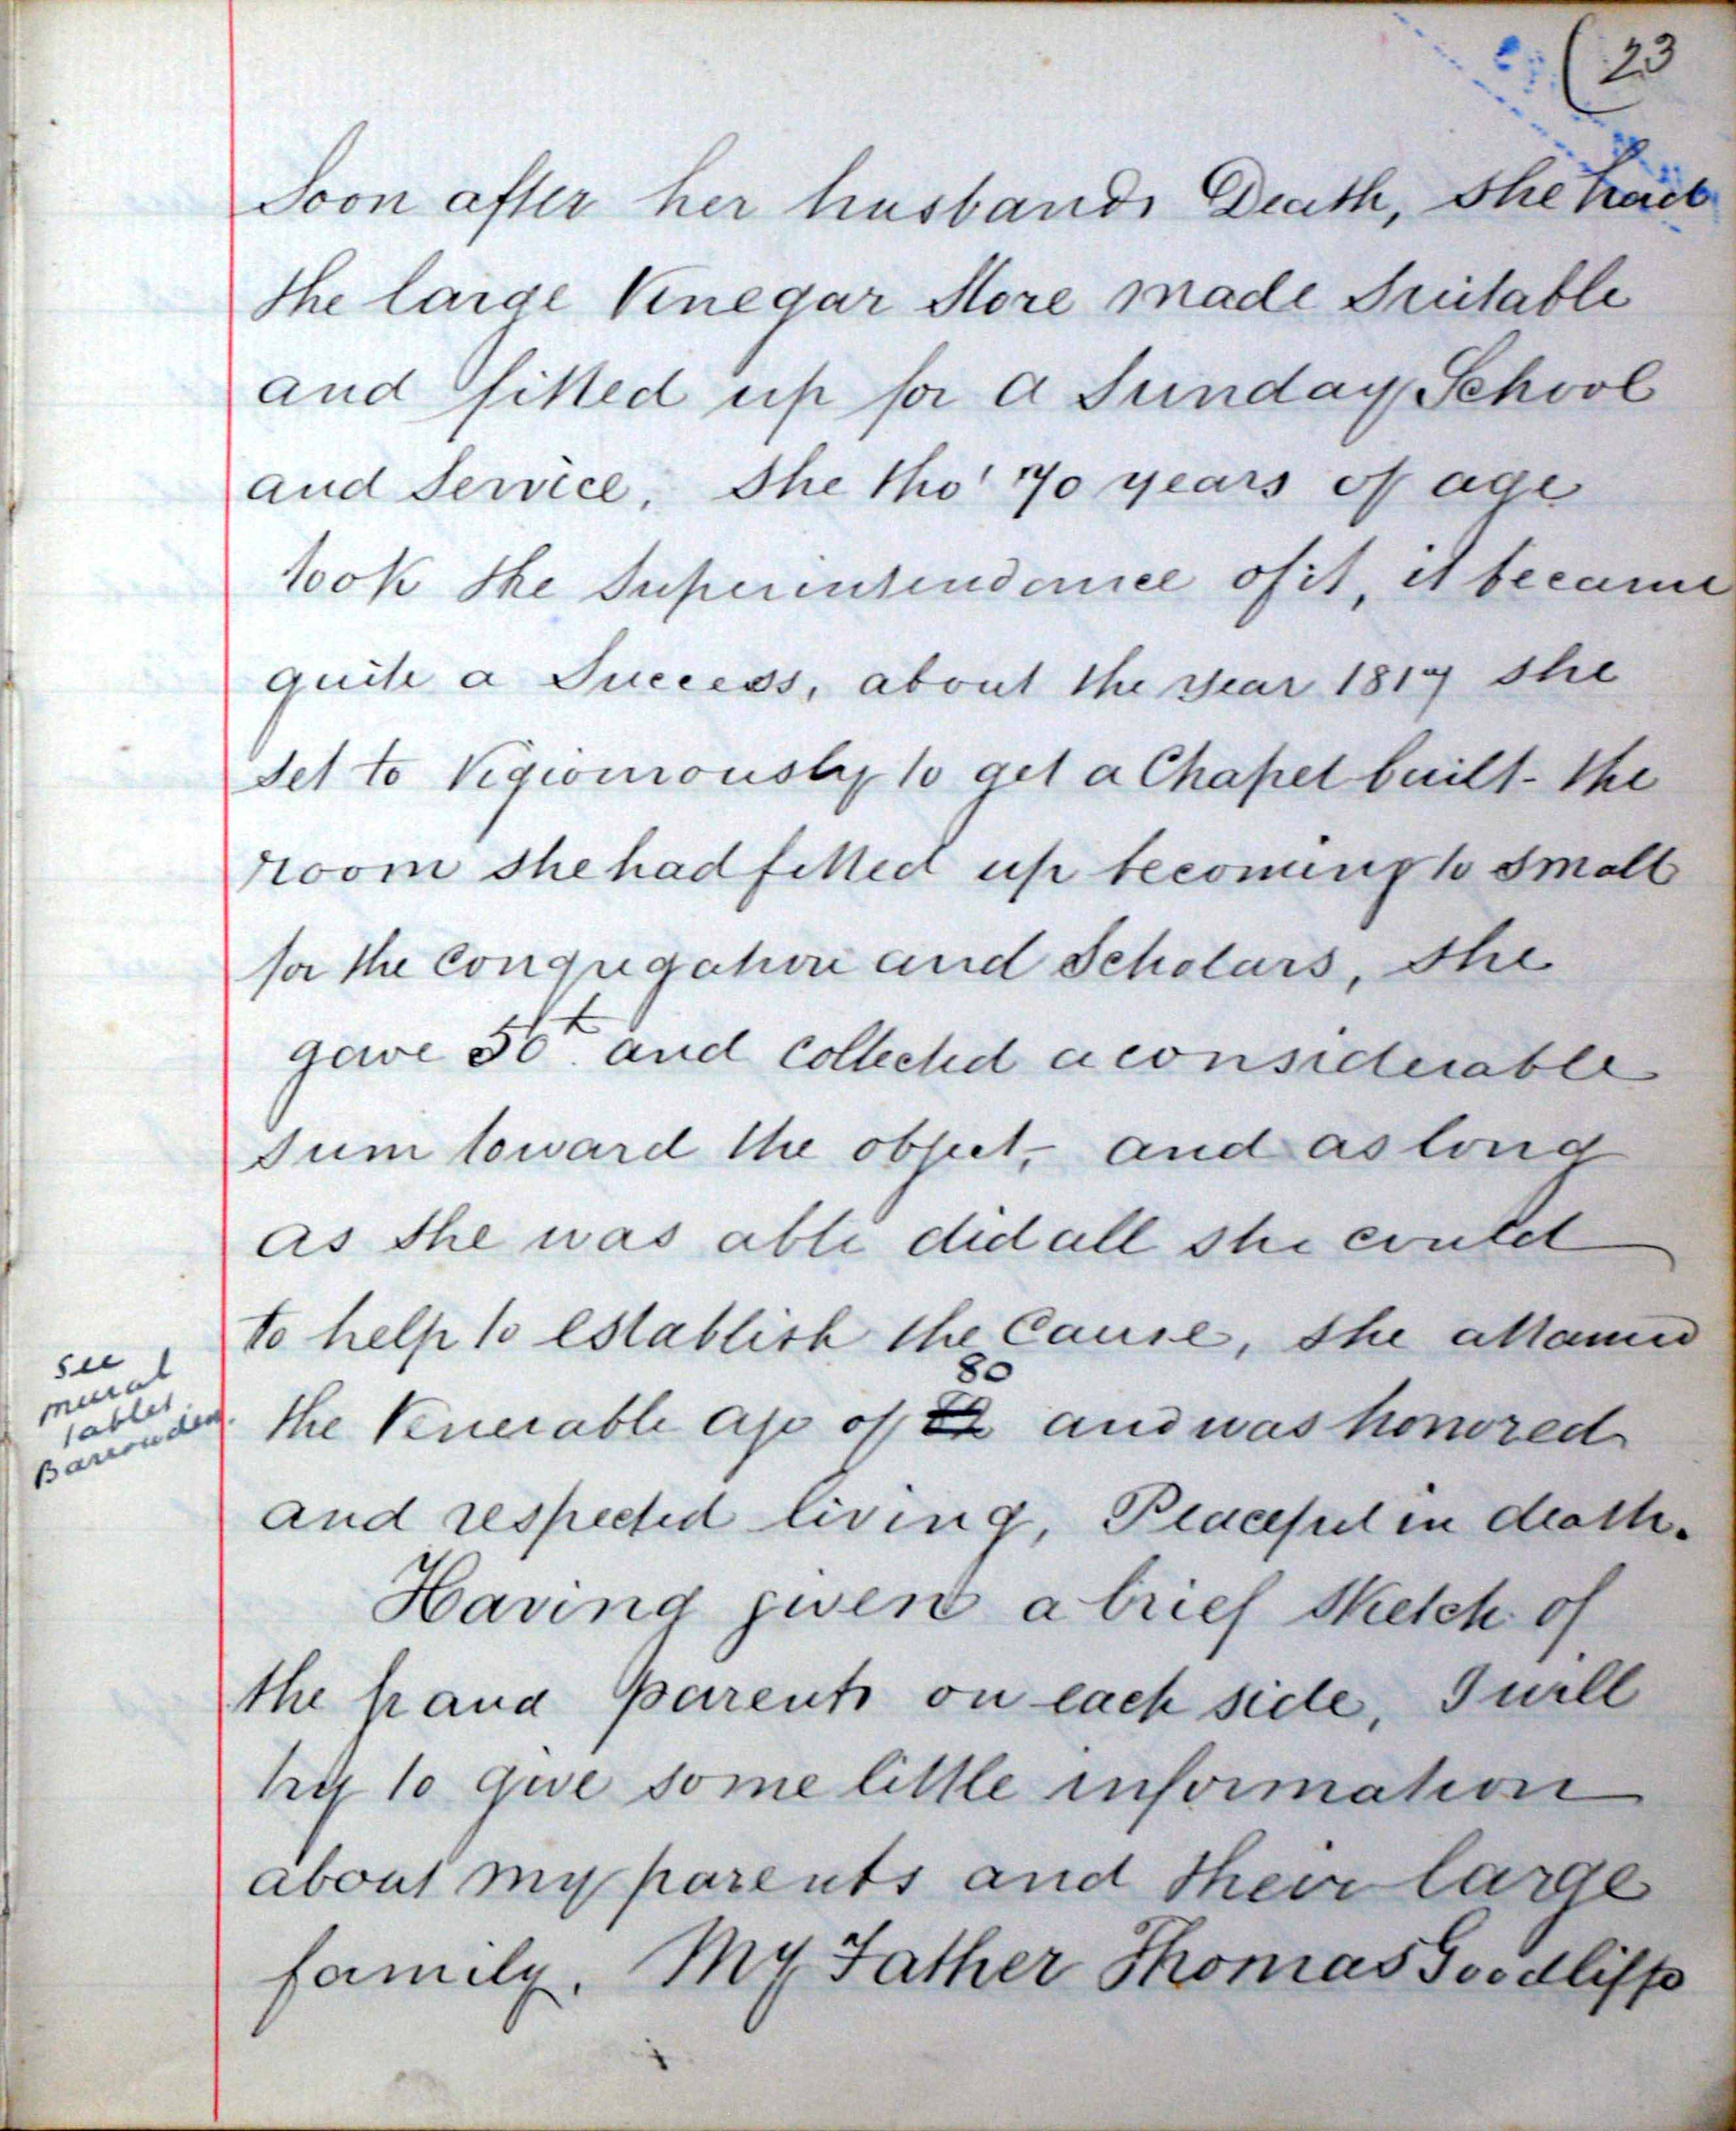 (23
Soon after her husbands Death, She had
the large Vinegar Store made Suitable
and fitted up for a Sunday School
and Service, She tho' 70 years of age
took the Superintendance of it, it became
quite a Success, about the year 1817 she
set to Vigiourously to get a Chapel built - the
room she had fitted up becoming to small
for the Congregation and Scholars, she
gave 50£ and collected a considerable
sum toward the object, - and as long
as she was able did all she could
to help to establish the Cause, she attained
80
the Venerable age of and was honored
and respected living, Peaceful in death.
see
mural
tablet
Barrowden.
Having given a brief Sketch of
the grand parents on each side, I will
try to give some little information
about my parents and their large
family. My Father Thomas Goodliffe